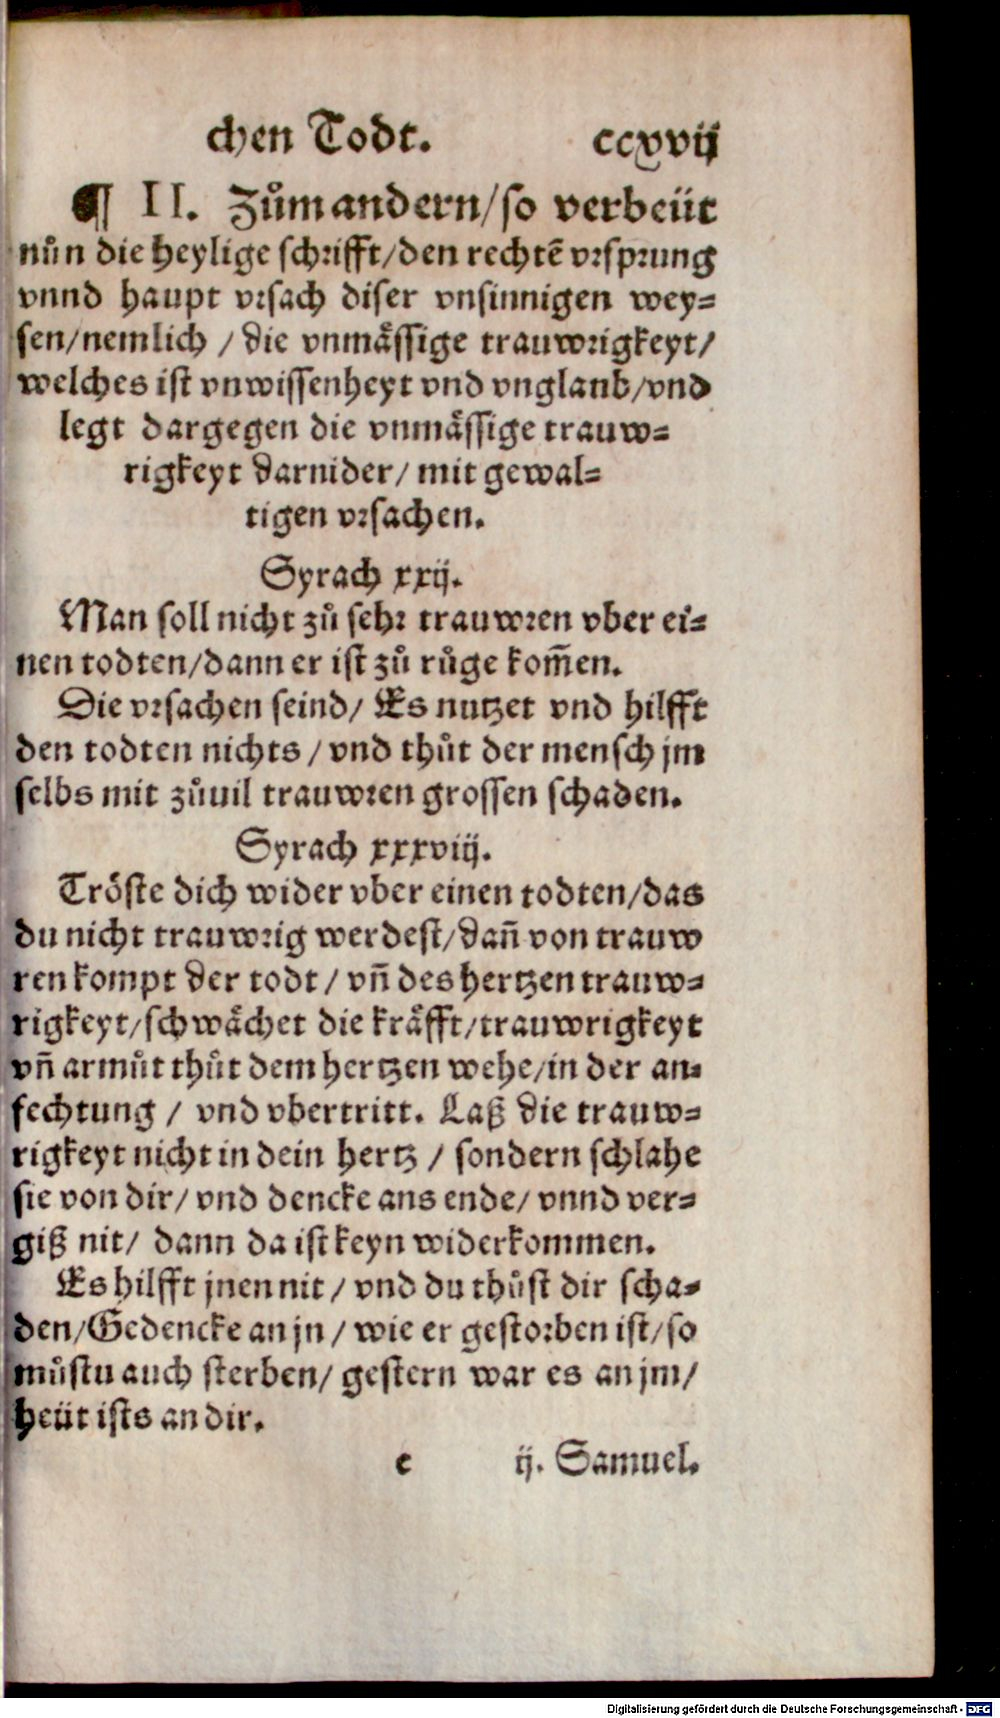 chen Todt. ccxvij
¶ II. Zuͦm andern/so verbeüt
nuͦn die heylige schrifft/den rechtē vrsprung
vnnd haupt vrsach diser vnsinnigen wey⸗
sen/nemlich /die vnmaͤssige trauwrigkeyt/
welches ist vnwissenheyt vnd vnglaub/vnd
legt dargegen die vnmaͤssige trauw⸗
rigkeyt darnider/ mit gewal⸗
tigen vrsachen.
Syrach xxij.
Man soll nicht zuͦ sehr trauwren vber ei⸗
nen todten/dann er ist zuͦ ruͦge kom̃en.
Die vrsachen seind/ Es nutzet vnd hilfft
den todten nichts /vnd thuͦt der mensch jm
selbs mit zuͦuil trauwren grossen schaden.
Syrach xxxviij.
Troͤste dich wider vber einen todten/das
du nicht trauwrig werdest/dañ von trauw
ren kompt der todt / vñ des hertzen trauw⸗
rigkeyt/schwaͤchet die kraͤfft/trauwrigkeyt
vñ armuͦt thuͦt dem hertzen wehe/in der an⸗
fechtung / vnd vbertritt. Laß die trauw⸗
rigkeyt nicht in dein hertz / sondern schlahe
sie von dir/ vnd dencke ans ende/ vnnd ver⸗
giß nit/ dann da ist keyn widerkommen.
Es hilfft jnen nit / vnd du thuͦst dir scha⸗
den/Gedencke an jn / wie er gestorben ist/so
muͦstu auch sterben/ gestern war es an jm/
heüt ists an dir.
e ij. Samuel.
Digitalisierung gefördert durch die Deutsche Forschungsgemeinschaft - DFG